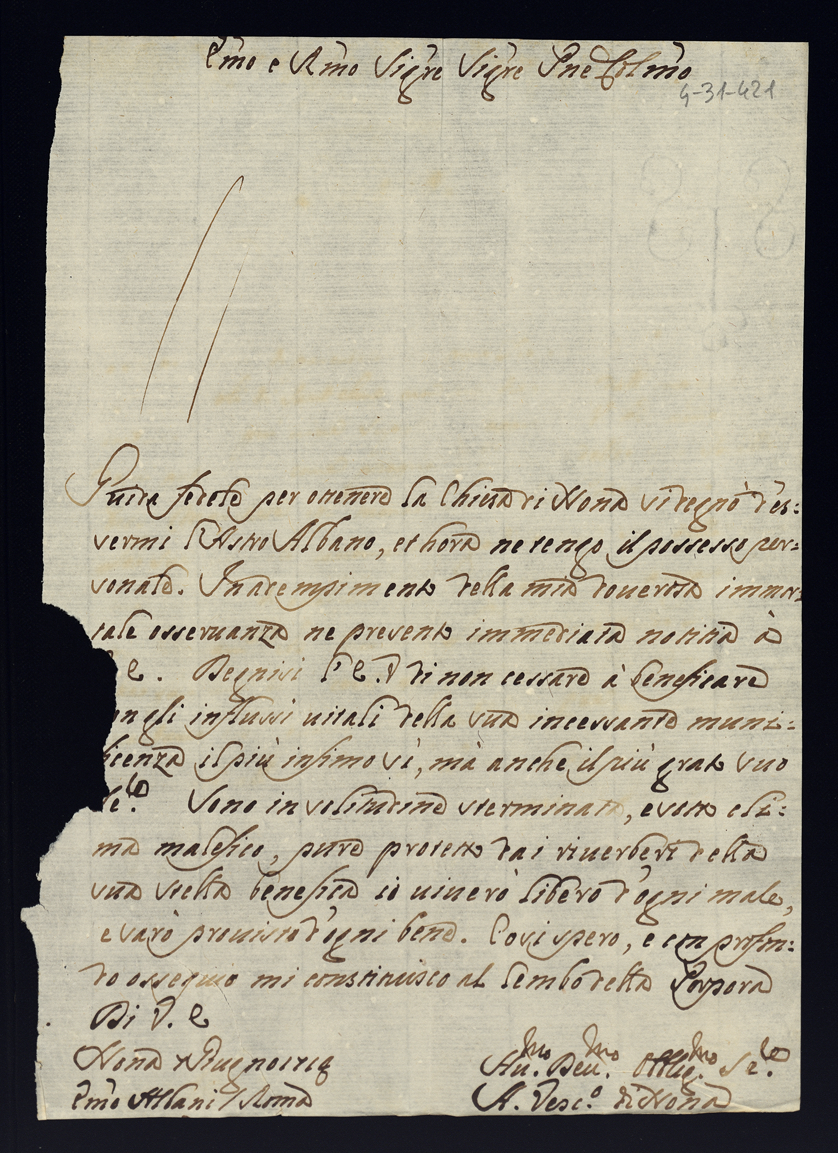 Em̃o e Rm̃o Sig̃re Sig̃re Pñe Colm̃o
4-31-421
Guida fedele per ottenere la Chiesa di Nona si degnò d'es:
sermi l'Astro Albano, et hora ne tengo il possesso per:
sonale. In adempimento della mia doverosa immor:
tale osservanza ne presento immediata notitia à
E. Degnisi l'E.V. di non cessare à beneficare
on gli influssi vitali della sua incessante muni:
ficenza il più infimo sì, mà anche il più grato suo
Se.re Sono in solitudine sterminata, e sotto cli:
ma malefico, pure protetto dai riverberi della
sua stella benefica io viverò libero d'ogni male,
e sarò provisto d'ogni bene. Così spero, e con profon:
do ossequio mi constituisco al lembo della Porpora
Di V. E
Nona Giugno 1719
Em̃o Albani / Roma
Hu.mo Dev.mo Oblig.mo Se.re
A. Vesc.o di Nona